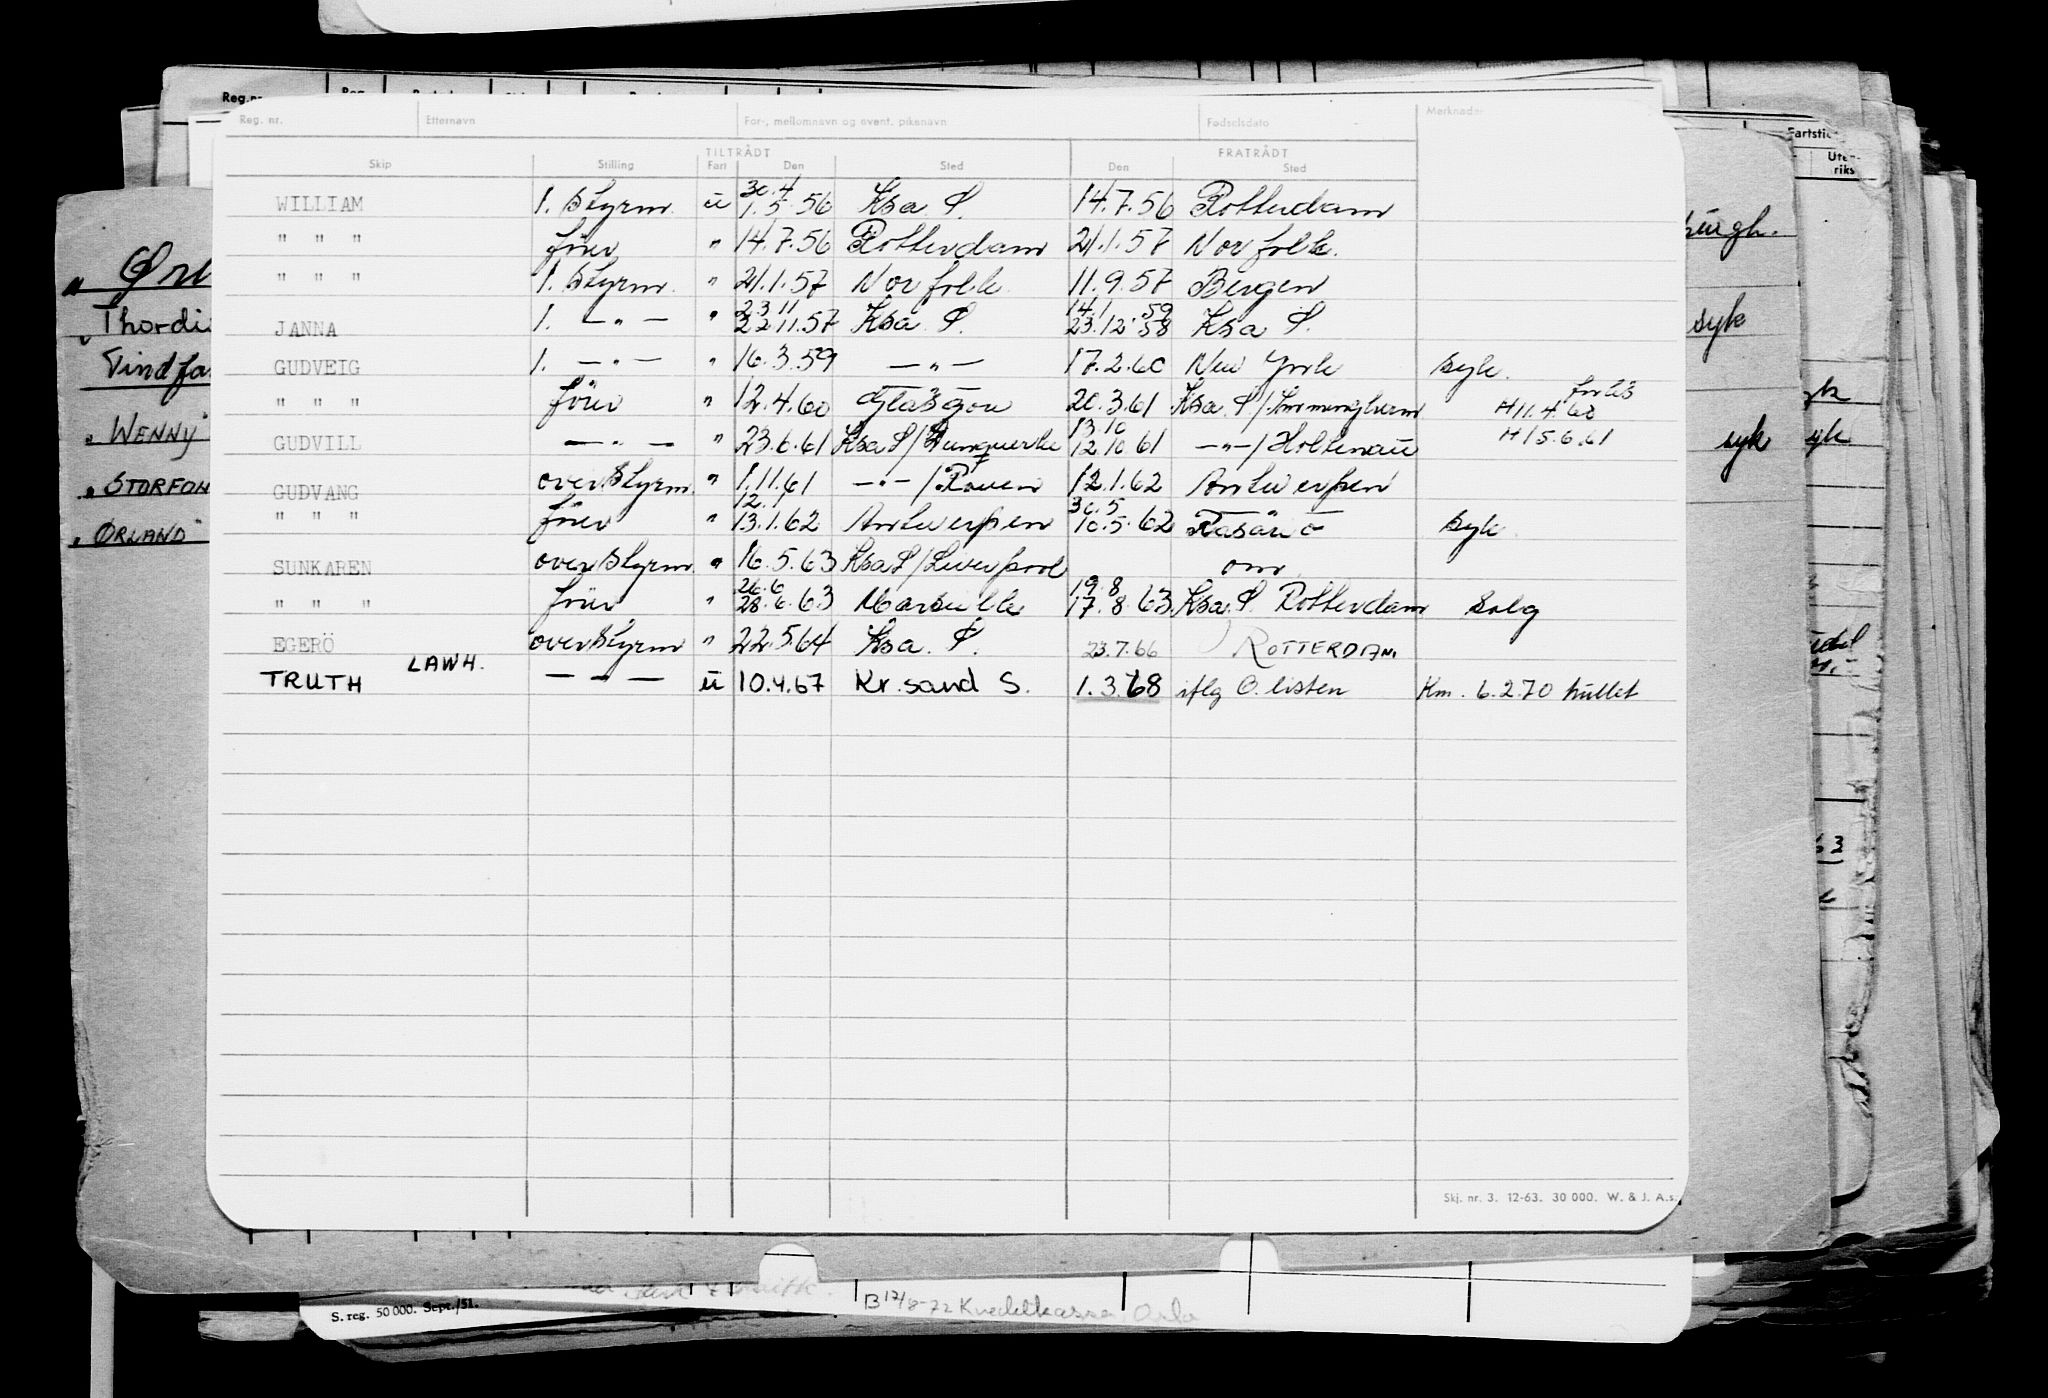 Reg. nr. Etternavn For-, mellomnavn og event. pikenavn Fødselsdato Merknader
TILTRÅDT FRATRÅDT
Skip Stilling Fart Den Sted Den Sted
WILLIAM 1. Styrm. u 30.4 1.5.56 Ksa. S. 14.7.56 Rotterdam
" " " förer " 14.7.56 Rotterdam 21.1.57 Norfolk.
" " " 1. Styrm. " 21.1.57 Norfolk 11.9.57 Bergen
JANNA 1. —"— " 23.11 22.11.57 Ksa. S. 14.1.59 23.12.58 Ksa S.
GUDVEIG 1. —"— " 16.3.59 —"— 17.2.60 New York syk.
" " " förer " 12.4.60 Glasgow 20.3.61 Ksa. S/Immingham H 11.4.60 forlis
GUDVILL —"— " 23.6.61 Ksa S/Dunquerke 13.10 12.10.61 —"—/Holtenau H 15.6.61
GUDVANG overstyrm. " 1.11.61 —"—/Rouen 12.1.62 Antwerpen
" " " förer " 12.1 13.1.62 Antwerpen 30.5 10.5.62 Rosario syk.
SUNKAREN overstyrm. " 16.5.63 Ksa S/Liverpool om
" " " förer " 26.6 28.6.63 Marseille 19.8 17.8.63 Ksa. S. Rotterdam solg
EGERÖ overstyrm " 22.5.64 Ksa. S. 23.7.66 ROTTERDAM
TRUTH LAWH. —"— u 10.4.67 Kr.sand S. 1.3.68 iflg O.listen Km. 6.2.70 hullet
Skj. nr. 3. 12-63. 30 000. W. & J. A.s.
Reg.nr.
Thordi
Tindfa
WENNY
STORFON
ØRLAND
burgh.
syk
syk
syk
Fartstid
Uten-
riks
S. reg. 50 000. Sept./51.
B 17/8-72 Kredittkassa, Oslo